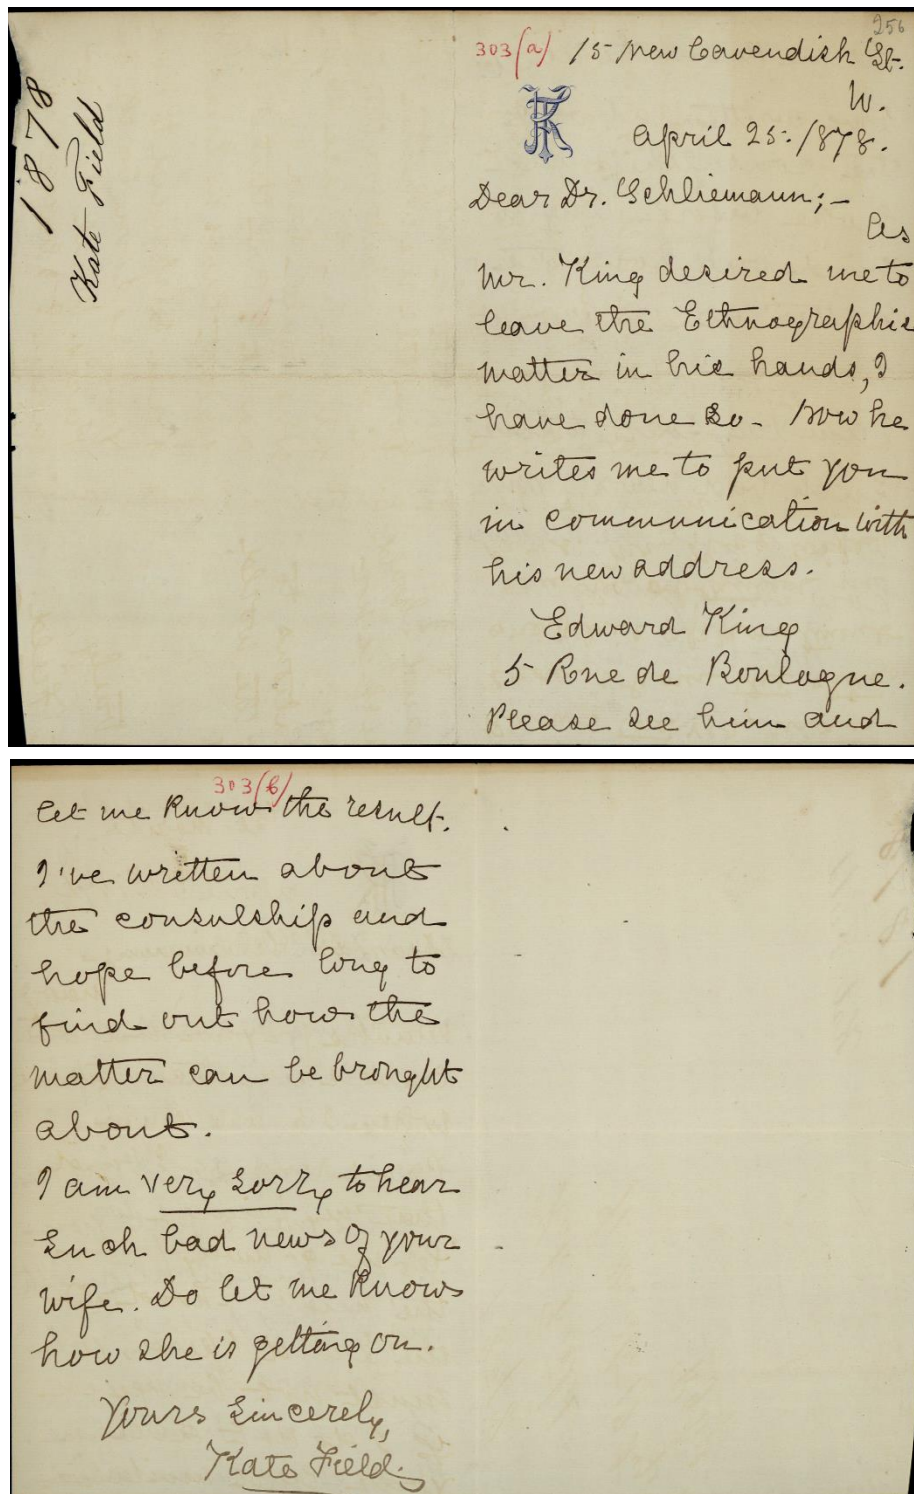 1878
Kate Field
256
303(a) 15 New Cavendish St.
W.
KF
April 25. /878.
Dear Dr. Schliemann; –
As
Mr. King desired me to
leave the Ethnographic
matter in his hands, I
have done so – Now he
writes me to put you
in communication with
his new address.
Edward King
5 Rue de Boulogne.
Please see him and
303(b)
let me know the result.
I've written about
the consulship and
hope before long to
find out how the
matter can be brought
about.
I am very sorry to hear
such bad news of your
wife. Do let me know
how she is getting on.
Yours Sincerely,
Kate Field.